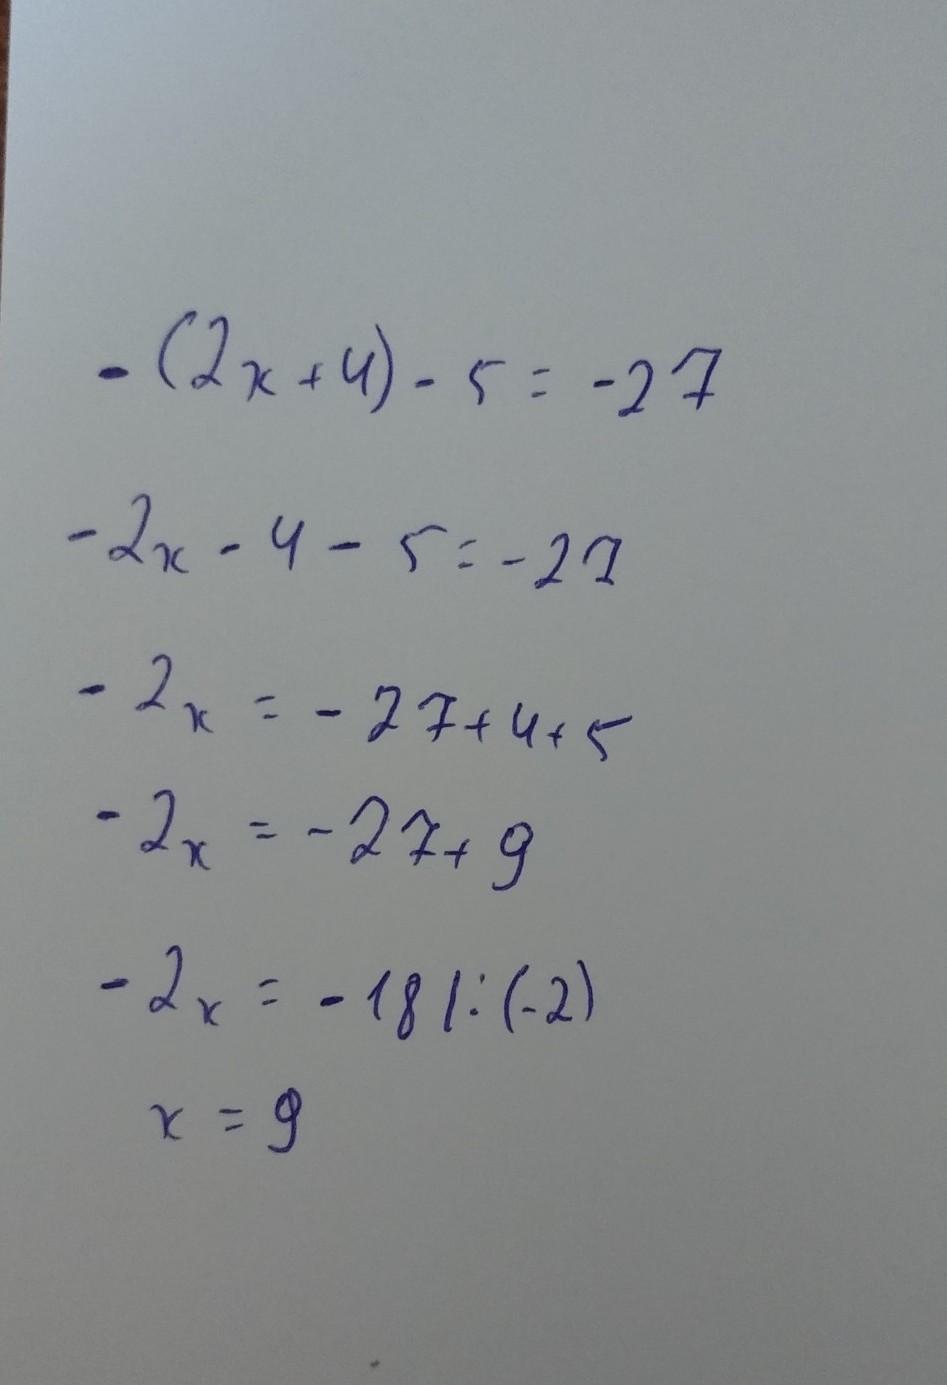 -(2x+4)-5=-27
-2x-4-5=-27
-2x=-27+4+5
-2x=-27+9
-2x=-18/:(-2)
x=9